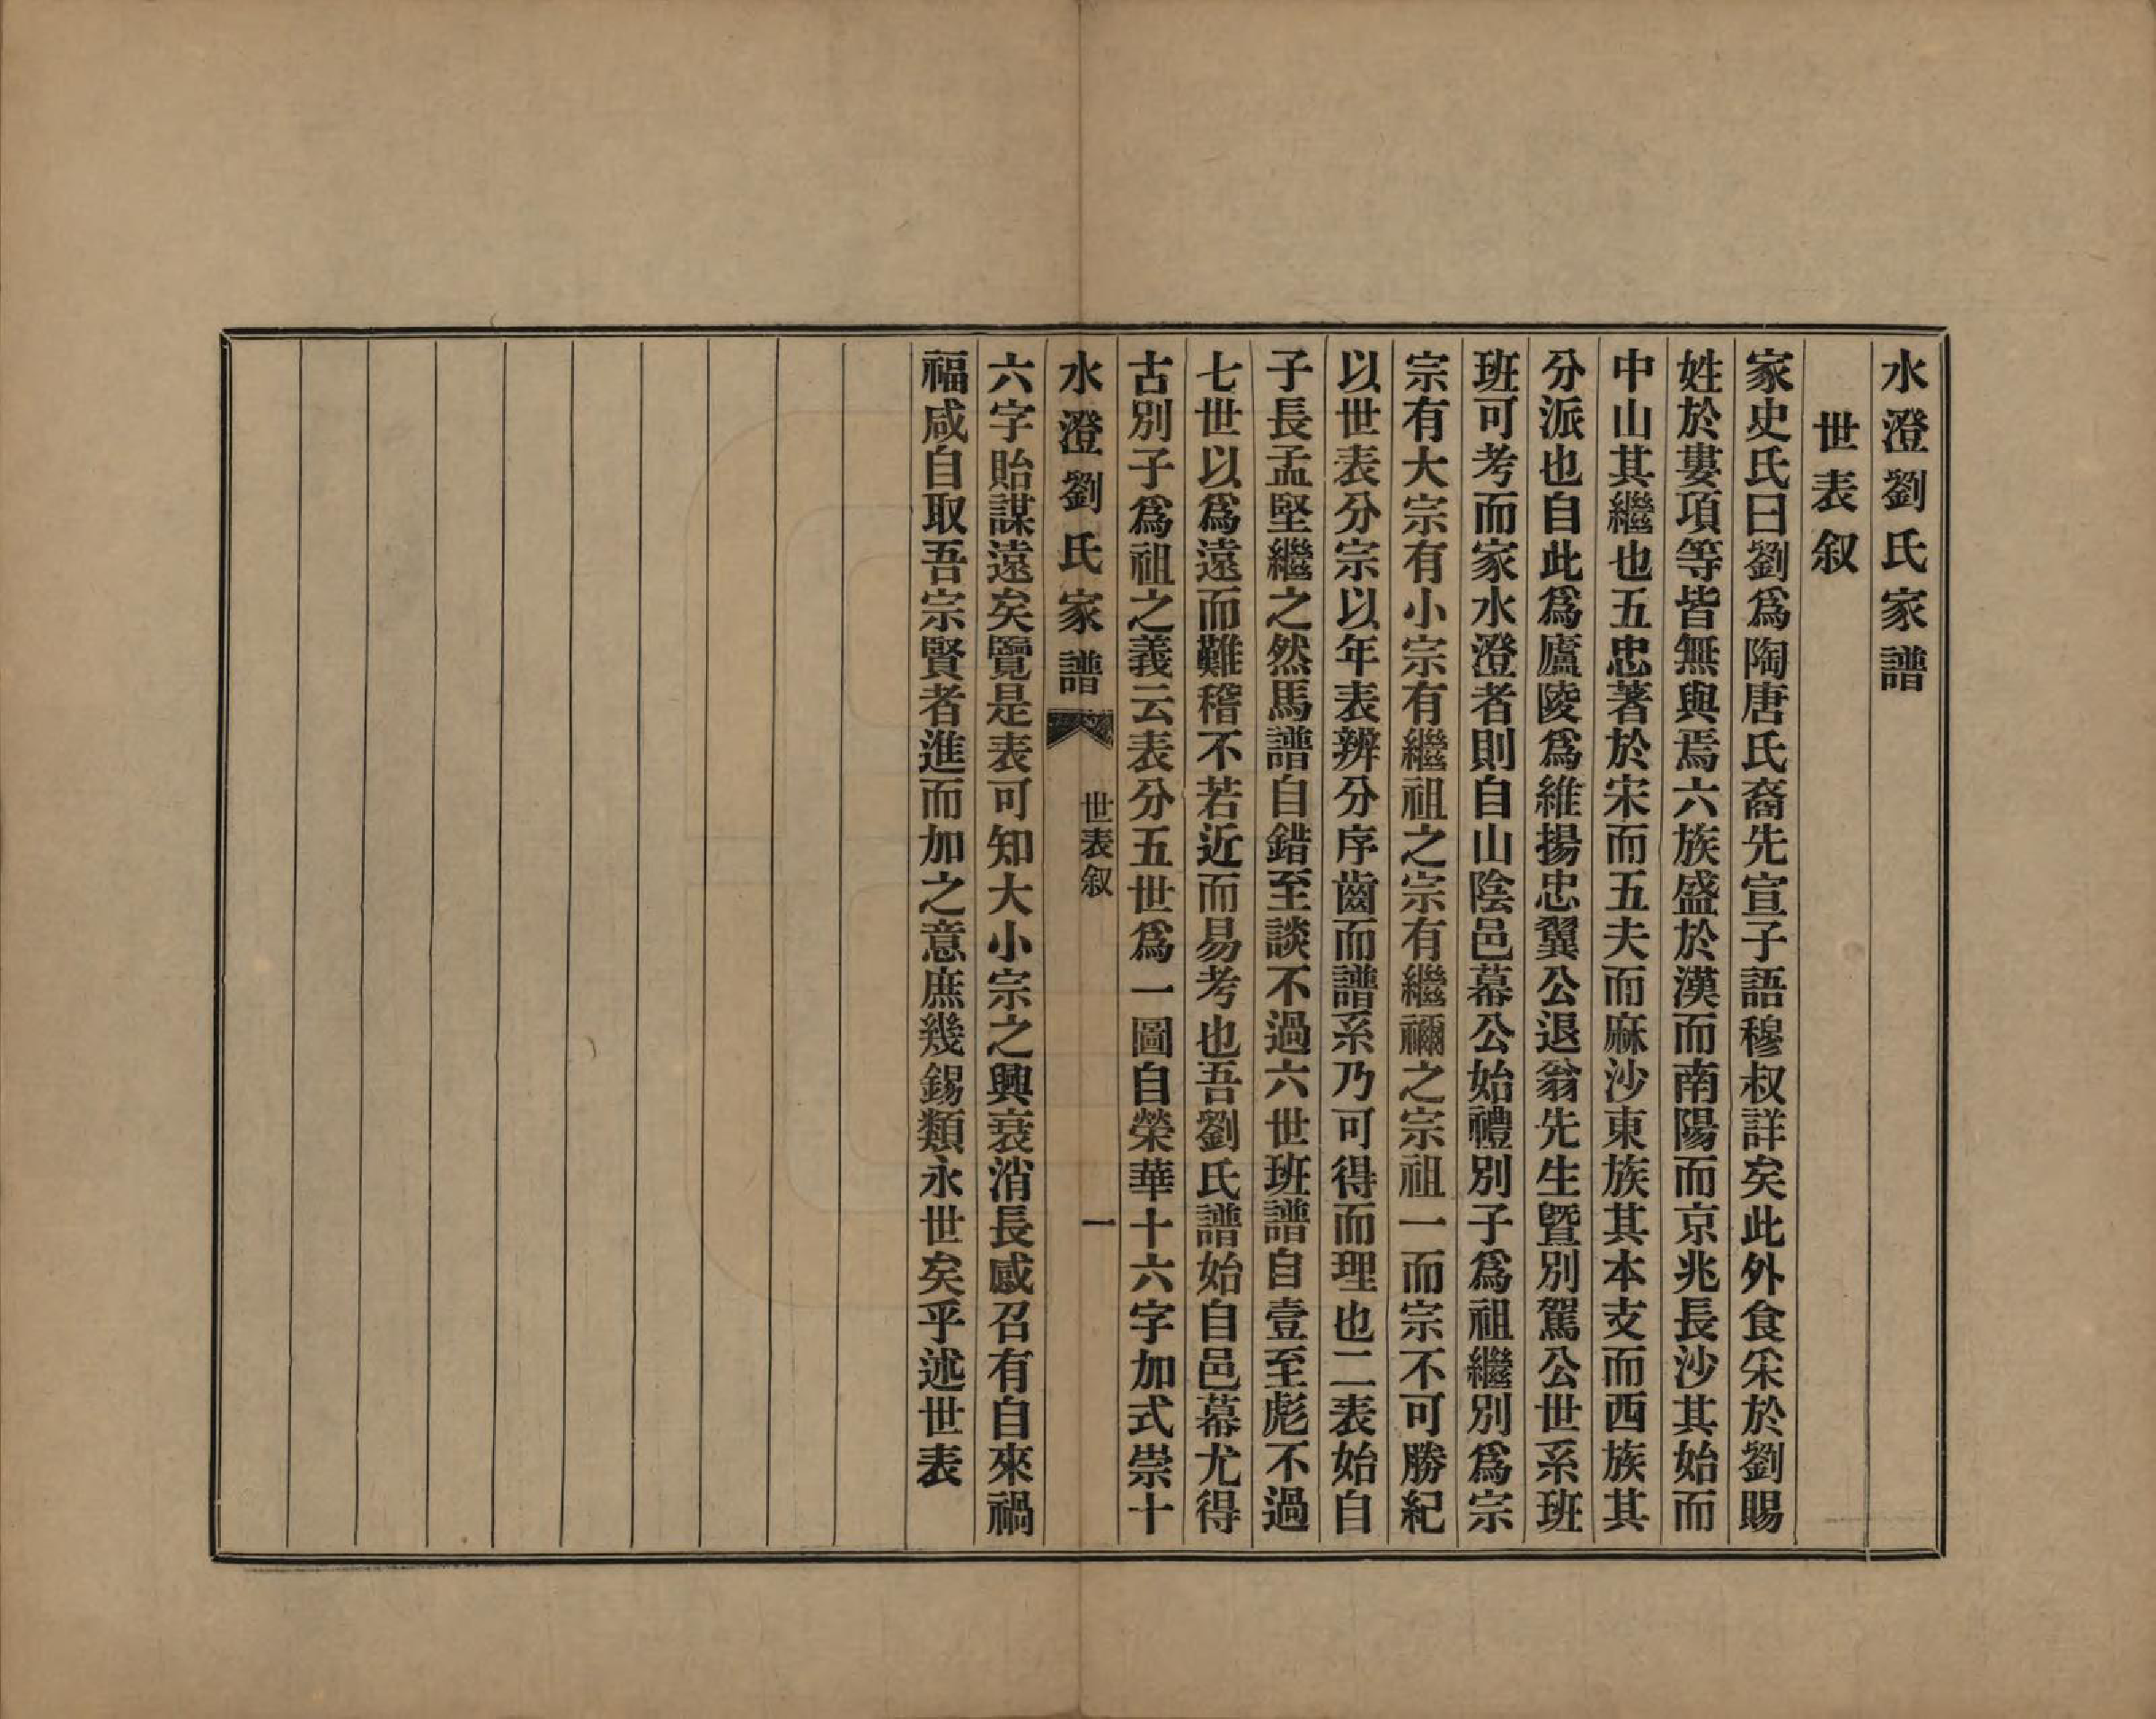 水澄劉氏家譜
世表叙
家史氏曰劉爲陶唐氏裔先宣子語穆叔詳矣此外食采於劉賜
姓於婁項等皆無與焉六族盛於漢而南陽而京兆長沙其始而
中山其繼也五忠著於宋而五夫而麻沙東族其本支而西族其
分派也自此爲廬陵爲維揚忠翼公退翁先生曁別駕公世系班
班可考而家水澄者則自山陰邑幕公始禮別子爲祖繼別爲宗
宗有大宗有小宗有繼祖之宗有繼禰之宗祖一而宗不可勝紀
以世表分宗以年表辨分序齒而譜系乃可得而理也二表始自
子長孟堅繼之然馬譜自錯至談不過六世班譜自壹至彪不過
七世以爲遠而難稽不若近而易考也吾劉氏譜始自邑幕尤得
古別子爲祖之義云表分五世爲一圖自榮華十六字加式崇十
水澄劉氏家譜 世表叙 一
六字貽謀遠矣覽是表可知大小宗之興衰消長感召有自來禍
福咸自取吾宗賢者進而加之意庶幾錫類永世矣乎述世表